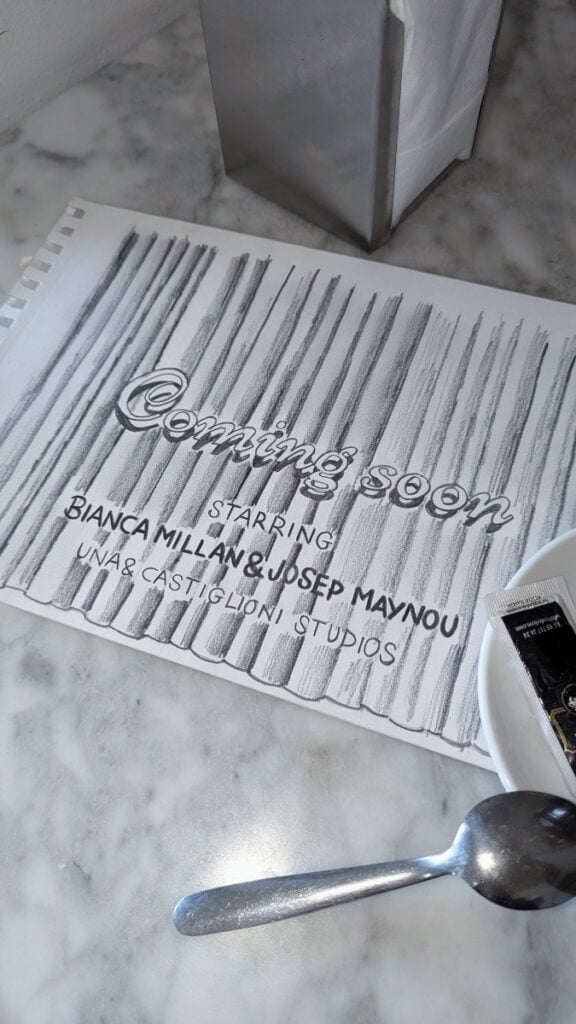 Coming soon
STARRING
BIANCA MILLAN & JOSEP MAYNOU
UNA & CASTIGLIONI STUDIOS